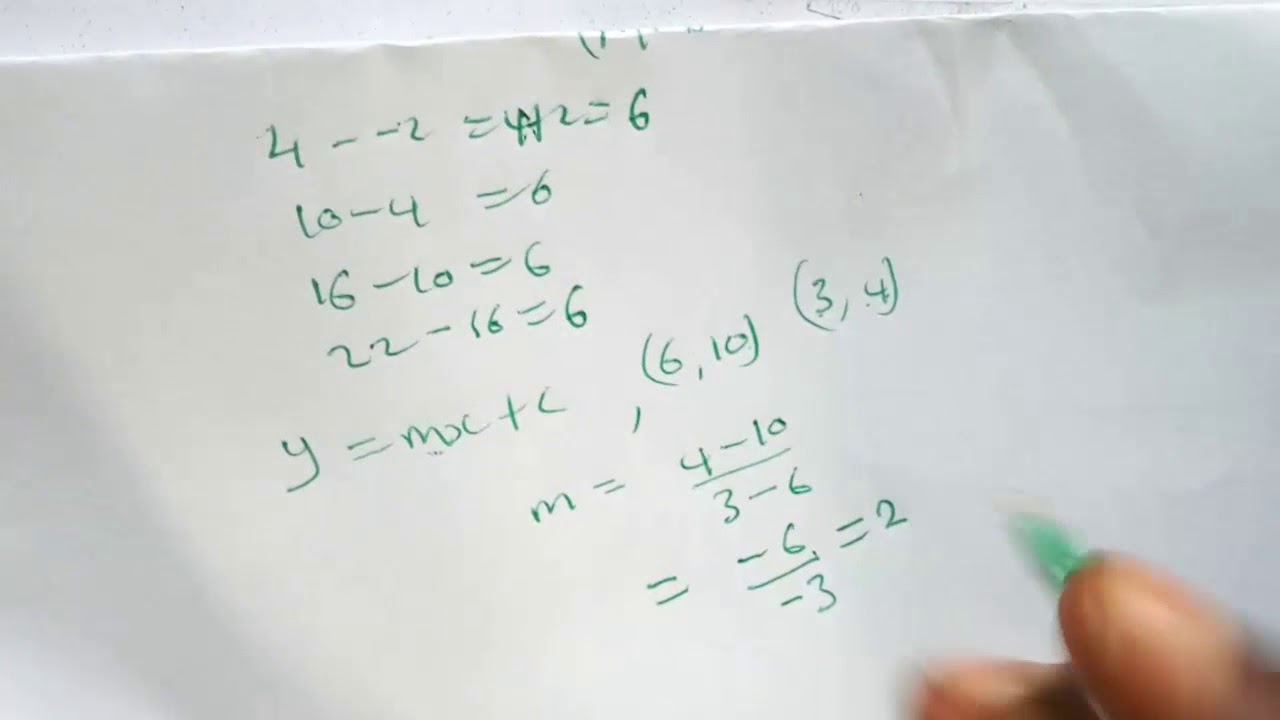 4 - -2 = 4+2 = 6
10 - 4 = 6
16 - 10 = 6
22 - 16 = 6
y = mx + c , (6, 10) (3, 4)
m = 4 - 10 / 3 - 6
= -6 / -3 = 2